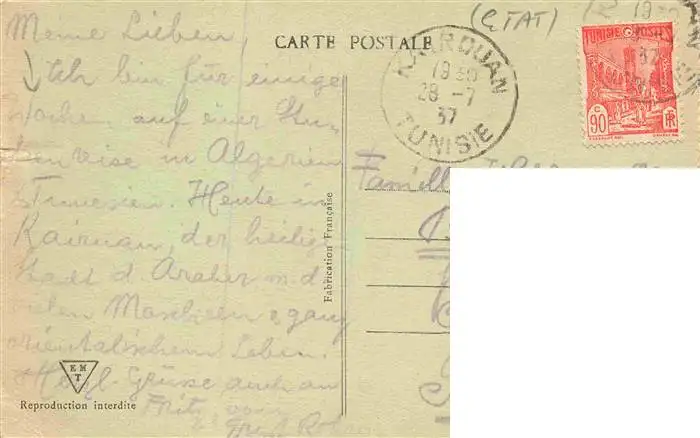 Meine Lieben,
Ich bin für einige
Woche auf einer Stu-
dienreise in Algerien
Tunesien. Heute in
Kairuan, der heilig.
Stadt d. Araber m. d.
vielen Moscheen & ganz
orientalischem Leben.
Herzl. Grüsse auch an
Fritz, von
CARTE POSTALE
(ETAT)
KAIROUAN
19 30
28 - 7
37
TUNISIE
TUNISIE POSTES
90 c
RF
Famille
Fabrication Française
EMT
Reproduction interdite